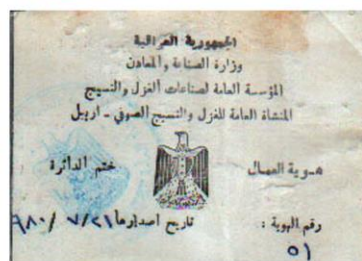 الجمهورية العراقية
وزارة الصناعة والمعادن
المؤسسة العامة لصناعات الغزل والنسيج
المنشاة العامة للغزل والنسيج الصوفي - اربيل
هـوية العمـال
ختم الدائرة
رقم الهوية :
تاريخ اصدارها ٩٨٠/ ٧/ ٢١
٥١